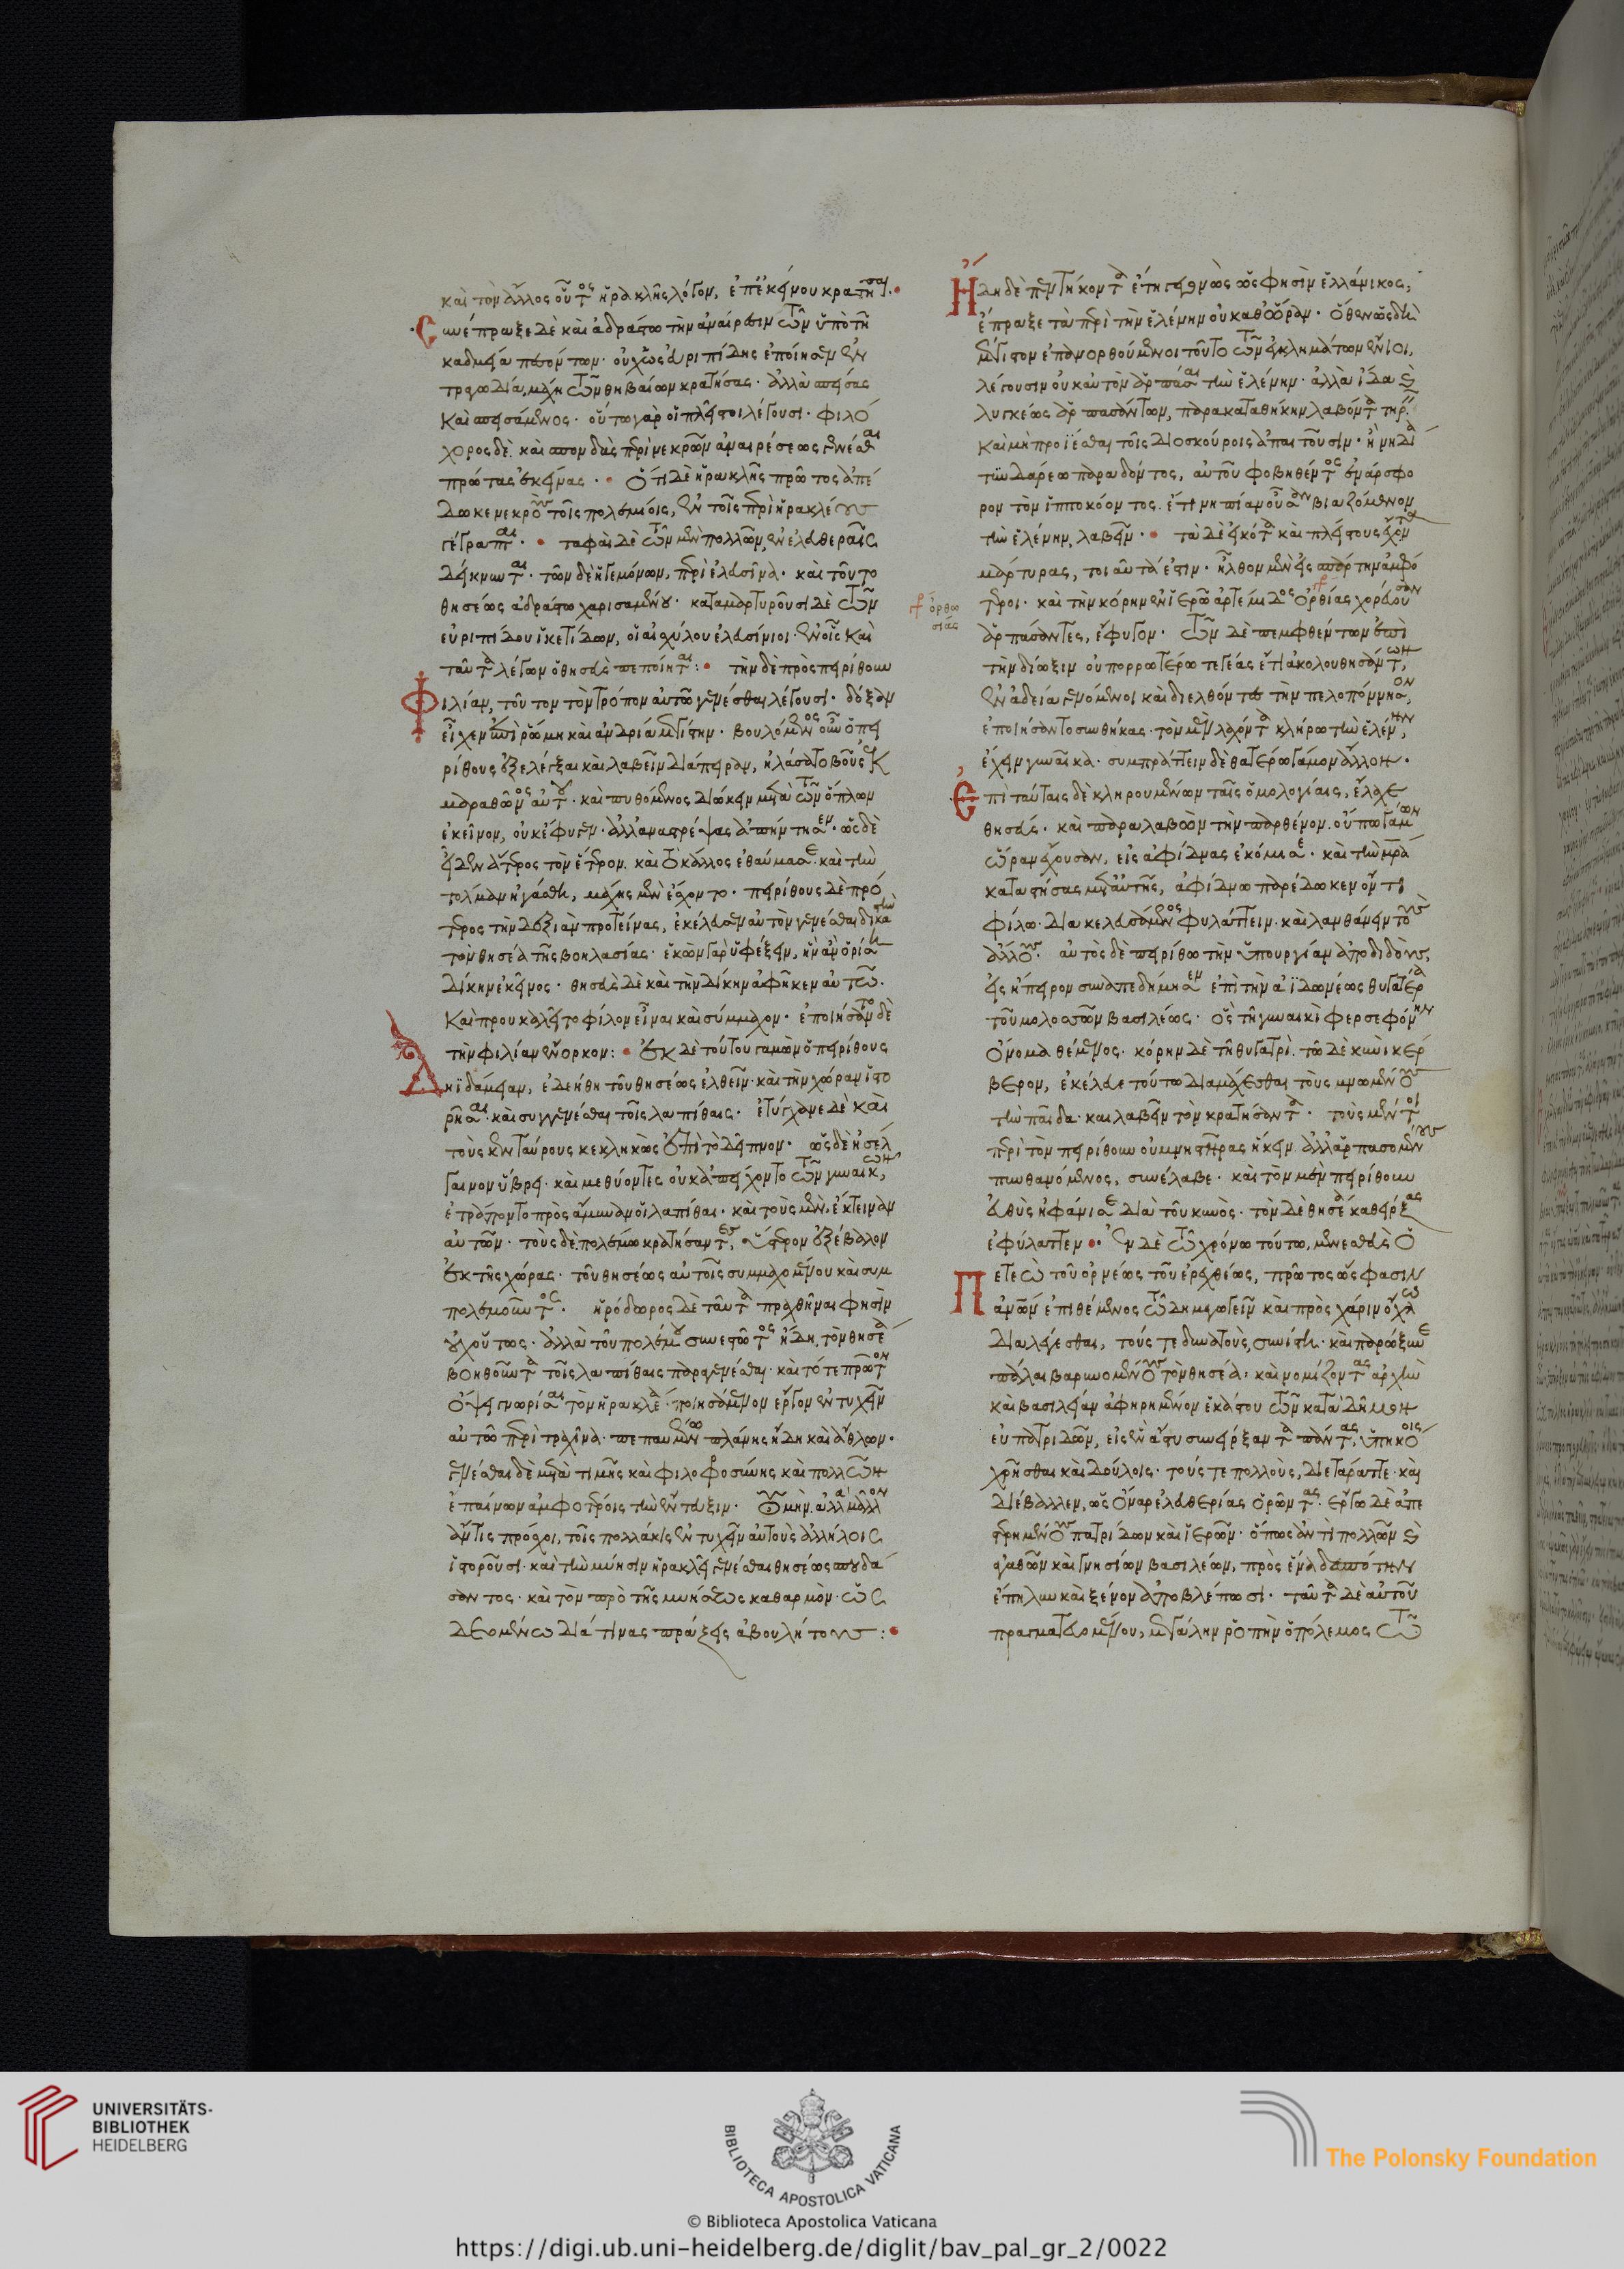 καὶ τὸν ἄλλος οὗτος ἡρακλῆς λόγον, ἐπ' ἐκείνου κρατῆσαι.
Συνέπραξε δὲ καὶ ἀδράστω τὴν ἀναίρεσιν τῶν ὑπὸ τῆ
καδμεία πεσόντων. οὐχ ὡς εὐριπίδης ἐποίησεν ἐν
τραγωδία, μάχη τῶν θηβαίων κρατήσας. ἀλλὰ πείσας
καὶ σπεισάμενος. οὕτω γὰρ οἱ πλεῖστοι λέγουσι. φιλό
χορος δὲ καὶ σπονδὰς περὶ νεκρῶν ἀναιρέσεως γενέσθαι
πρώτας ἐκείνας. ὅτι δὲ ἡρακλῆς πρῶτος ἀπέ
δωκε νεκροὺς τοῖς πολεμίοις, ἐν τοῖς περὶ ἡρακλέους
γέγραπται. ταφαὶ δὲ τῶν μὲν πολλῶν, ἐν ἐλευθεραῖς
δείκνυνται. τῶν δὲ ἡγεμόνων, περὶ ἐλευσῖνα. καὶ τοῦτο
θησέως ἀδράστω χαρισαμένου. καταμαρτυροῦσι δὲ τῶν
εὐριπίδου ἱκετίδων, οἱ αἰσχύλου ἐλευσίνιοι. ἐν οἷς καὶ
ταῦτα λέγων ὁ θησεὺς πεποίηται: τὴν δὲ πρὸς πειρίθουν
Φιλίαν, τοῦτον τὸν τρόπον αὐτῶ γενέσθαι λέγουσι. δόξαν
εἶχεν ἐπὶ ῥώμη καὶ ἀνδρία μεγίστην. βουλόμενος οὖν ὁ πει
ρίθους ἐξελέγξαι καὶ λαβεῖν διάπειραν, ἠλάσατο βοῦς ἐκ
μαραθῶνος αὐτοῦ. καὶ πυθόμενος διώκειν μετὰ τῶν ὅπλων
ἐκεῖνον, οὐκ ἔφυγεν. ἀλλ' ἀναστρέψας ἀπήντησεν. ὡς δὲ
εἶδεν ἅτερος τὸν ἕτερον. καὶ τὸ κάλλος ἐθαύμασε. καὶ τὴν
τόλμαν ἠγάσθη, μάχης μὲν ἔσχοντο. πειρίθους δὲ πρό
τερος τὴν δεξιὰν προτείνας, ἐκέλευσεν αὐτὸν γενέσθαι δικαστὴν
τὸν θησέα τῆς βοηλασίας. ἑκὼν γὰρ ὑφέξειν, ἣν ἂν ὁρίση
δίκην ἐκεῖνος. θησεὺς δὲ καὶ τὴν δίκην ἀφῆκεν αὐτῶ.
Καὶ προυκαλεῖτο φίλον εἶναι καὶ σύμμαχον. ἐποιήσαντο δὲ
τὴν φιλίαν ἔνορκον: ἐκ δὲ τούτου γαμῶν ὁ πειρίθους
Δηϊδάμειαν, ἐδεήθη τοῦ θησέως ἐλθεῖν. καὶ τὴν χώραν ἱστο
ρῆσαι. καὶ συγγενέσθαι τοῖς λαπίθαις. ἐτύγχανε δὲ καὶ
τοὺς κενταύρους κεκληκὼς ἐπὶ τὸ δεῖπνον. ὡς δὲ ἠσέλ
γαινον ὕβρει. καὶ μεθύοντες οὐκ ἀπείχοντο τῶν γυναικῶν,
ἐτράποντο πρὸς ἄμυναν οἱ λαπίθαι. καὶ τοὺς μὲν ἔκτειναν
αὐτῶν. τοὺς δὲ πολέμω κρατήσαντες, ὕστερον ἐξέβαλον
ἐκ τῆς χώρας. τοῦ θησέως αὐτοῖς συμμαχομένου καὶ συμ
πολεμοῦντος. ἡρόδωρος δὲ ταῦτα πραχθῆναι φησὶν
οὐχ οὕτως. ἀλλὰ τοῦ πολέμου συνεστῶτος ἤδη, τὸν θησέα
βοηθοῦντα τοῖς λαπίθαις παραγενέσθαι. καὶ τότε πρῶτον
ὄψει γνωρίσαι τὸν ἡρακλέα ποιησάμενον ἔργον ἐντυχεῖν
αὐτῶ περὶ τραχῖνα. πεπαυμένω πλάνης ἤδη καὶ ἄθλων.
γενέσθαι δὲ μετὰ τιμῆς καὶ φιλοφροσύνης καὶ πολλῶν
ἐπαίνων ἀμφοτέροις τὴν ἔντευξιν. οὐ μὴν ἀλλὰ μᾶλλον
ἄν τις πρόσχοι, τοῖς πολλάκις ἐντυχεῖν αὐτοὺς ἀλλήλοις
ἱστοροῦσι. καὶ τὴν μύησιν ἡρακλεῖ γενέσθαι θησέως σπουδά
σαντος. καὶ τὸν πρὸ τῆς μυήσεως καθαρμὸν. ὡς
δεομένω διά τινας πράξεις ἀβουλήτους:
Ἤδη δὲ πεντήκοντα ἔτη γεγονὼς ὥς φησὶν ἑλλάνικος,
ἔπραξε τὰ περὶ τὴν ἑλένην οὐ καθ' ὥραν. ὅθεν ὡς δὴ
μέγιστον ἐπανορθούμενοι τοῦτο τῶν ἐγκλημάτων ἔνιοι,
λέγουσιν οὐκ αὐτὸν ἁρπάσαι τὴν ἑλένην. ἀλλὰ ἴδα καὶ
λυγκέως ἁρπασάντων, παρακαταθήκην λαβόντα τηρεῖν
καὶ μὴ προΐεσθαι τοῖς διοσκούροις ἀπαιτοῦσιν. ἢ νὴ δί
τυνδάρεω παραδόντος, αὐτοῦ φοβηθέντος ἐναρσφο
ρον τὸν ἱπποκόοντος. ἔτι νηπίαν οὖσαν βιαζόμενον
τὴν ἑλένην, λαβεῖν. τὰ δὲ εἰκότα καὶ πλείστους ἔχοντα
μάρτυρας, τοιαῦτά ἐστιν. ἦλθον μὲν εἰς σπάρτην ἀμφό
τεροι. καὶ τὴν κόρην ἐν ἱερῶ ἀρτέμιδος ὀρθίας χορεύουσαν
ὀρθω
σίας
ἁρπάσαντες, ἔφυγον. τῶν δὲ πεμφθέντων ἐπὶ
τὴν δίωξιν οὐ πορρωτέρω τεγέας ἐπακολουθησάντων,
ἐν ἀδεία γενόμενοι καὶ διελθόντες τὴν πελοπόννησον,
ἐποιήσαντο συνθήκας. τὸν μὲν λαχόντα κλήρω τὴν ἑλένην,
ἔχειν γυναῖκα. συμπράττειν δὲ θατέρω γάμον ἄλλον.
Ἐπὶ ταύταις δὲ κληρουμένων ταῖς ὁμολογίαις, ἔλαχε
θησεύς. καὶ παραλαβὼν τὴν παρθένον. οὔπω γάμων
ὥραν ἔχουσαν, εἰς ἀφίδνας ἐκόμισε. καὶ τὴν μητέρα
καταστήσας μετ' αὐτῆς, ἀφίδνω παρέδωκεν ὄντι
φίλω. διακελευσάμενος φυλάττειν. καὶ λανθάνειν τοὺς
ἄλλους. αὐτὸς δὲ πειρίθω τὴν ὑπουργίαν ἀποδιδοὺς,
εἰς ἤπειρον συναπεδήμησεν ἐπὶ τὴν ἀϊδωνέως θυγατέρα
τοῦ μολοσσῶν βασιλέως. ὃς τῆ γυναικὶ φερσεφόνην
ὄνομα θέμενος. κόρην δὲ τῆ θυγατρὶ. τῶ δὲ κυνὶ κέρ
βερον, ἐκέλευε τούτω διαμάχεσθαι τοὺς μνωμένους
τὴν παῖδα. καὶ λαβεῖν τὸν κρατήσαντα. τοὺς μέντοι
περὶ τὸν πειρίθουν οὐ μνηστῆρας ἥκειν. ἀλλ' ἁρπασομένους
πυνθανόμενος, συνέλαβε. καὶ τὸν μὲν πειρίθουν
εὐθὺς ἠφάνισε διὰ τοῦ κυνὸς. τὸν δὲ θησέα καθείρξας
ἐφύλαττεν. ἐν δὲ τῶ χρόνω τούτω, μενεσθεὺς ὁ
Πετεὼ τοῦ ὀρνέως τοῦ ἐρεχθέως, πρῶτος ὥς φασιν
ἀνθρώπων ἐπιθέμενος τῶ δημαγωγεῖν καὶ πρὸς χάριν ὄχλω
διαλέγεσθαι, τούς τε δυνατοὺς, συνίστη. καὶ παρώξυνε
πάλαι βαρυνομένους τὸν θησέα, καὶ νομίζοντας ἀρχὴν
καὶ βασιλείαν ἀφηρημένον ἑκάστου τῶν κατὰ δῆμον
εὐπατριδῶν, εἰς ἓν ἄστυ συνείρξαντα πάντας, ὑπηκόοις
χρῆσθαι καὶ δούλοις. τούς τε πολλοὺς, διετάραττε. καὶ
διέβαλλεν, ὡς ὄναρ ἐλευθερίας ὁρῶντας. ἔργω δὲ ἀπε
στερημένους πατρίδων καὶ ἱερῶν. ὅπως ἀντὶ πολλῶν καὶ
ἀγαθῶν καὶ γνησίων βασιλέων, πρὸς ἕνα δεσπότην
ἔπηλυν καὶ ξένον ἀποβλέπωσι. ταῦτα δὲ αὐτοῦ
πραγματευομένου, μεγάλην ῥοπὴν ὁ πόλεμος τῶ
UNIVERSITÄTS-
BIBLIOTHEK
HEIDELBERG
BIBLIOTECA APOSTOLICA VATICANA
The Polonsky Foundation
© Biblioteca Apostolica Vaticana
https://digi.ub.uni-heidelberg.de/diglit/bav_pal_gr_2/0022